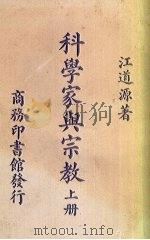 江道源著
科學家與宗教 上册
商務印書館發行